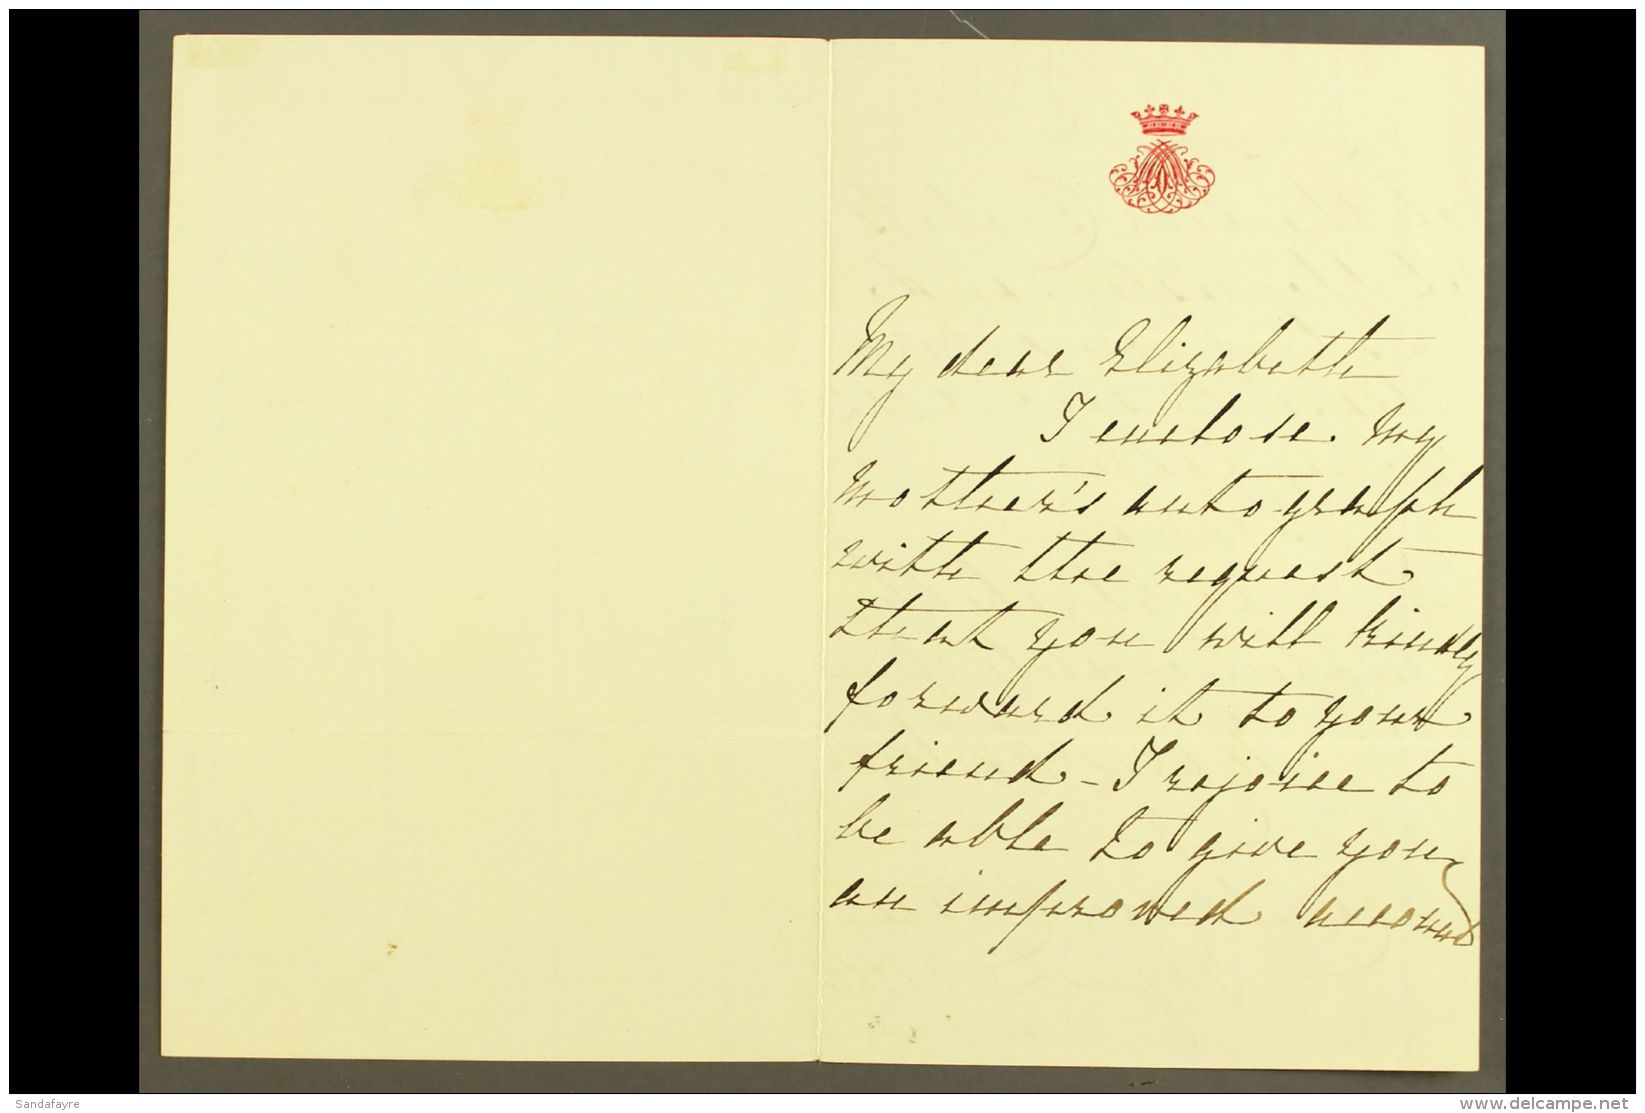 My dear Elizabeth
I enclose my
mother's autograph
with the request
that you will kindly
forward it to your
friend - I rejoice to
be able to give you
an improved account
Sandafayre
www.delcampe.net